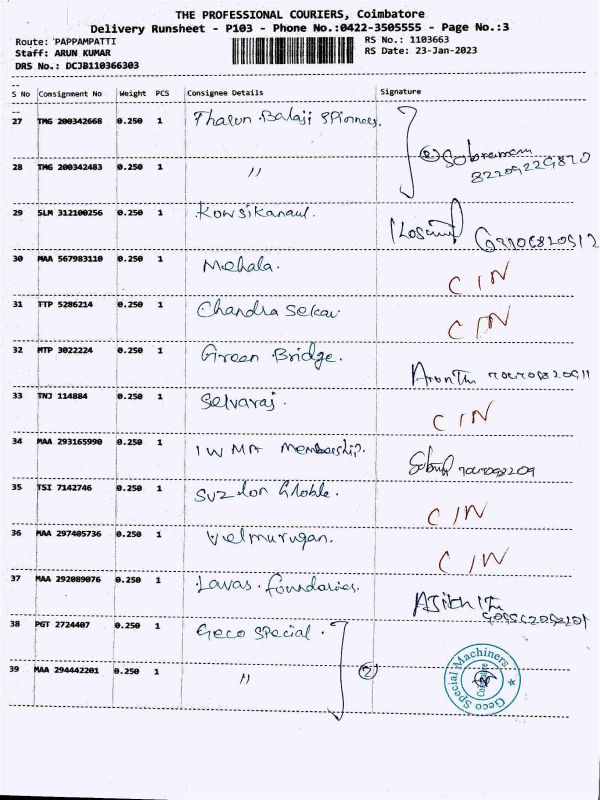 THE PROFESSIONAL COURIERS, Coimbatore
Delivery Runsheet - P103 - Phone No.:0422-3505555 - Page No.:3
Route: PAPPAMPATTI RS No.: 1103663
Staff: ARUN KUMAR RS Date: 23-Jan-2023
DRS No.: DCJB110366303
S No Consignment No Weight PCS Consignee Details Signature
27 TMG 200342668 0.250 1 Tharun Balaji Spinners.
28 TMG 200342483 0.250 1 〃
29 SLM 312100256 0.250 1 Kowsikanaul.
30 MAA 567983110 0.250 1 Mehala. C/N
31 TTP 5286214 0.250 1 Chandra Sekar C/N
32 MTP 3022224 0.250 1 Green Bridge.
33 TNJ 114884 0.250 1 Selvaraj. C/N
34 MAA 293165990 0.250 1 IWMA Membership.
35 TSI 7142746 0.250 1 Suzlon Globle. C/N
36 MAA 297405736 0.250 1 Velmurugan. C/N
37 MAA 292089076 0.250 1 Lavas. foundaries.
38 PGT 2724407 0.250 1 Geco Special.
39 MAA 294442201 0.250 1 〃 2
Geco Special Machiners
Coimbatore